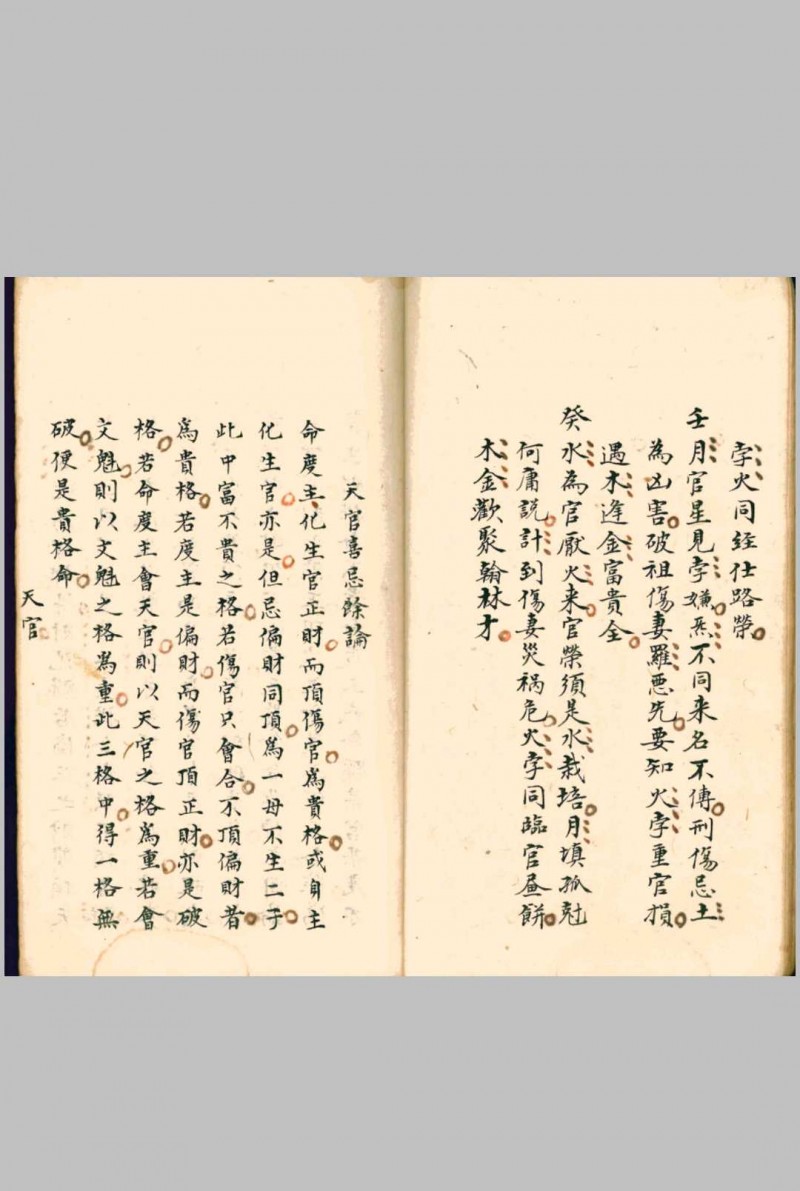 孛火同經仕路榮
壬月官星見孛嫌炁不同来名不傳刑傷忌土
為凶害破祖傷妻羅悪先要知火孛重官損
遇木逢金富貴全
癸水為官厭火来官榮須是水栽培月填孤尅
何庸説計到傷妻災禍危火孛同臨官
木金歡聚翰林才
天官喜忌餘論
命度主化生官正財而頂傷官為貴格或自主
化生官亦是但忌偏財同頂為一母不生二子
此中富不貴之格若傷官只會合不頂偏財者
為貴格若度主是偏財而傷官頂正財亦是破
格若命度主會天官則以天官之格為重若會
文魁則以文魁之格為重此三格中得一格無
破便是貴格命
天官